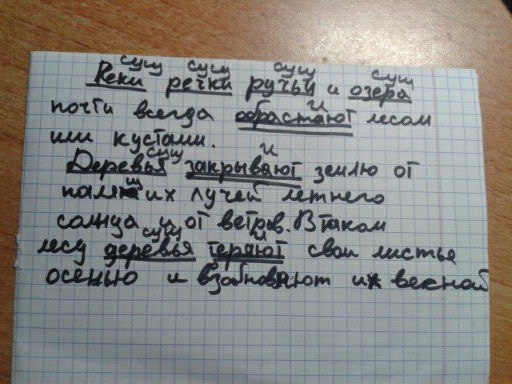 сущ сущ сущ сущ
Реки речки ручьи и озера
и
почти всегда обрастают лесом
или кустами.
и
Деревья закрывают землю от
сущ
палящих лучей летнего
солнца и от ветров. В таком
сущ
лесу деревья теряют свои листье
осенью и взобновяют их весной